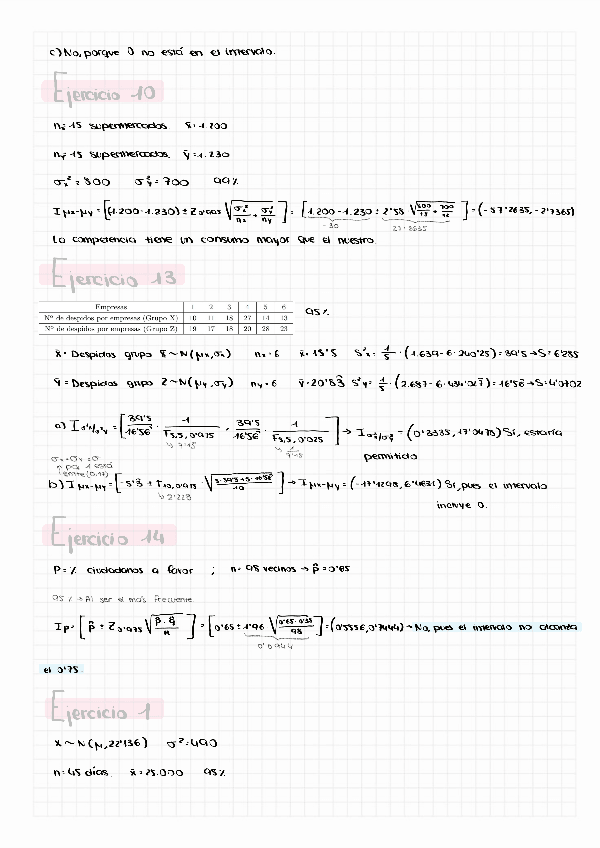 c) No, porque 0 no está en el intervalo.
Ejercicio 10
nx = 15 supermercados x̄ = 1.200
ny = 15 supermercados ȳ = 1.230
σx² = 500 σy² = 700 99%
I μx-μy = [(1.200 - 1.230) ± Z0'995 √(σx²/nx + σy²/ny)] = [1.200 - 1.230 ± 2'58 √(500/15 + 700/15)] = (-57'2635, -2'7365)
-30 27'2635
La competencia tiene un consumo mayor que el nuestro.
Ejercicio 13
Empresas 1 2 3 4 5 6 95%
Nº de despidos por empresas (Grupo X) 10 11 18 27 14 13
Nº de despidos por empresas (Grupo Z) 19 17 18 20 28 23
x̄ = Despidos grupo X ~ N(μx, σx) nx = 6 x̄ = 15'5 S²x = 1/5 · (1.639 - 6 · 240'25) = 39'5 → S = 6'285
ȳ = Despidos grupo Z ~ N(μy, σy) ny = 6 ȳ = 20'83 S²y = 1/5 · (2.687 - 6 · 434'02) = 16'56 → S = 4'0702
a) I σ²x/σ²y = [39'5/16'56 · 1/F5,5,0'975 , 39'5/16'56 · 1/F5,5,0'025] → I σ²x/σ²y = (0'3335, 17'0475) Sí, estaría
↳ 7'15 ↳ 1/7'15
permitido
σx = σy = σ
↑ pq 1 está
entre (0,17)
b) I μx-μy = [-5'3 ± T10,0'975 · √] → I μx-μy = (-17'1298, 6'4631) Sí, pues el intervalo
↳ 2'228
incluye 0.
Ejercicio 14
P = % ciudadanos a favor ; n = 98 vecinos → p̂ = 0'65
95% → Al ser el más frecuente
Ip = [p̂ ± Z0'975 √(p̂ · q̂/n)] = [0'65 ± 1'96 √(0'65 · 0'35/98)] = (0'5556, 0'7444) → No, pues el intervalo no alcanza
0'0944
el 0'75
Ejercicio 1
X ~ N(μ, 22'136) σ² = 490
n = 45 días. x̄ = 25.000 95%